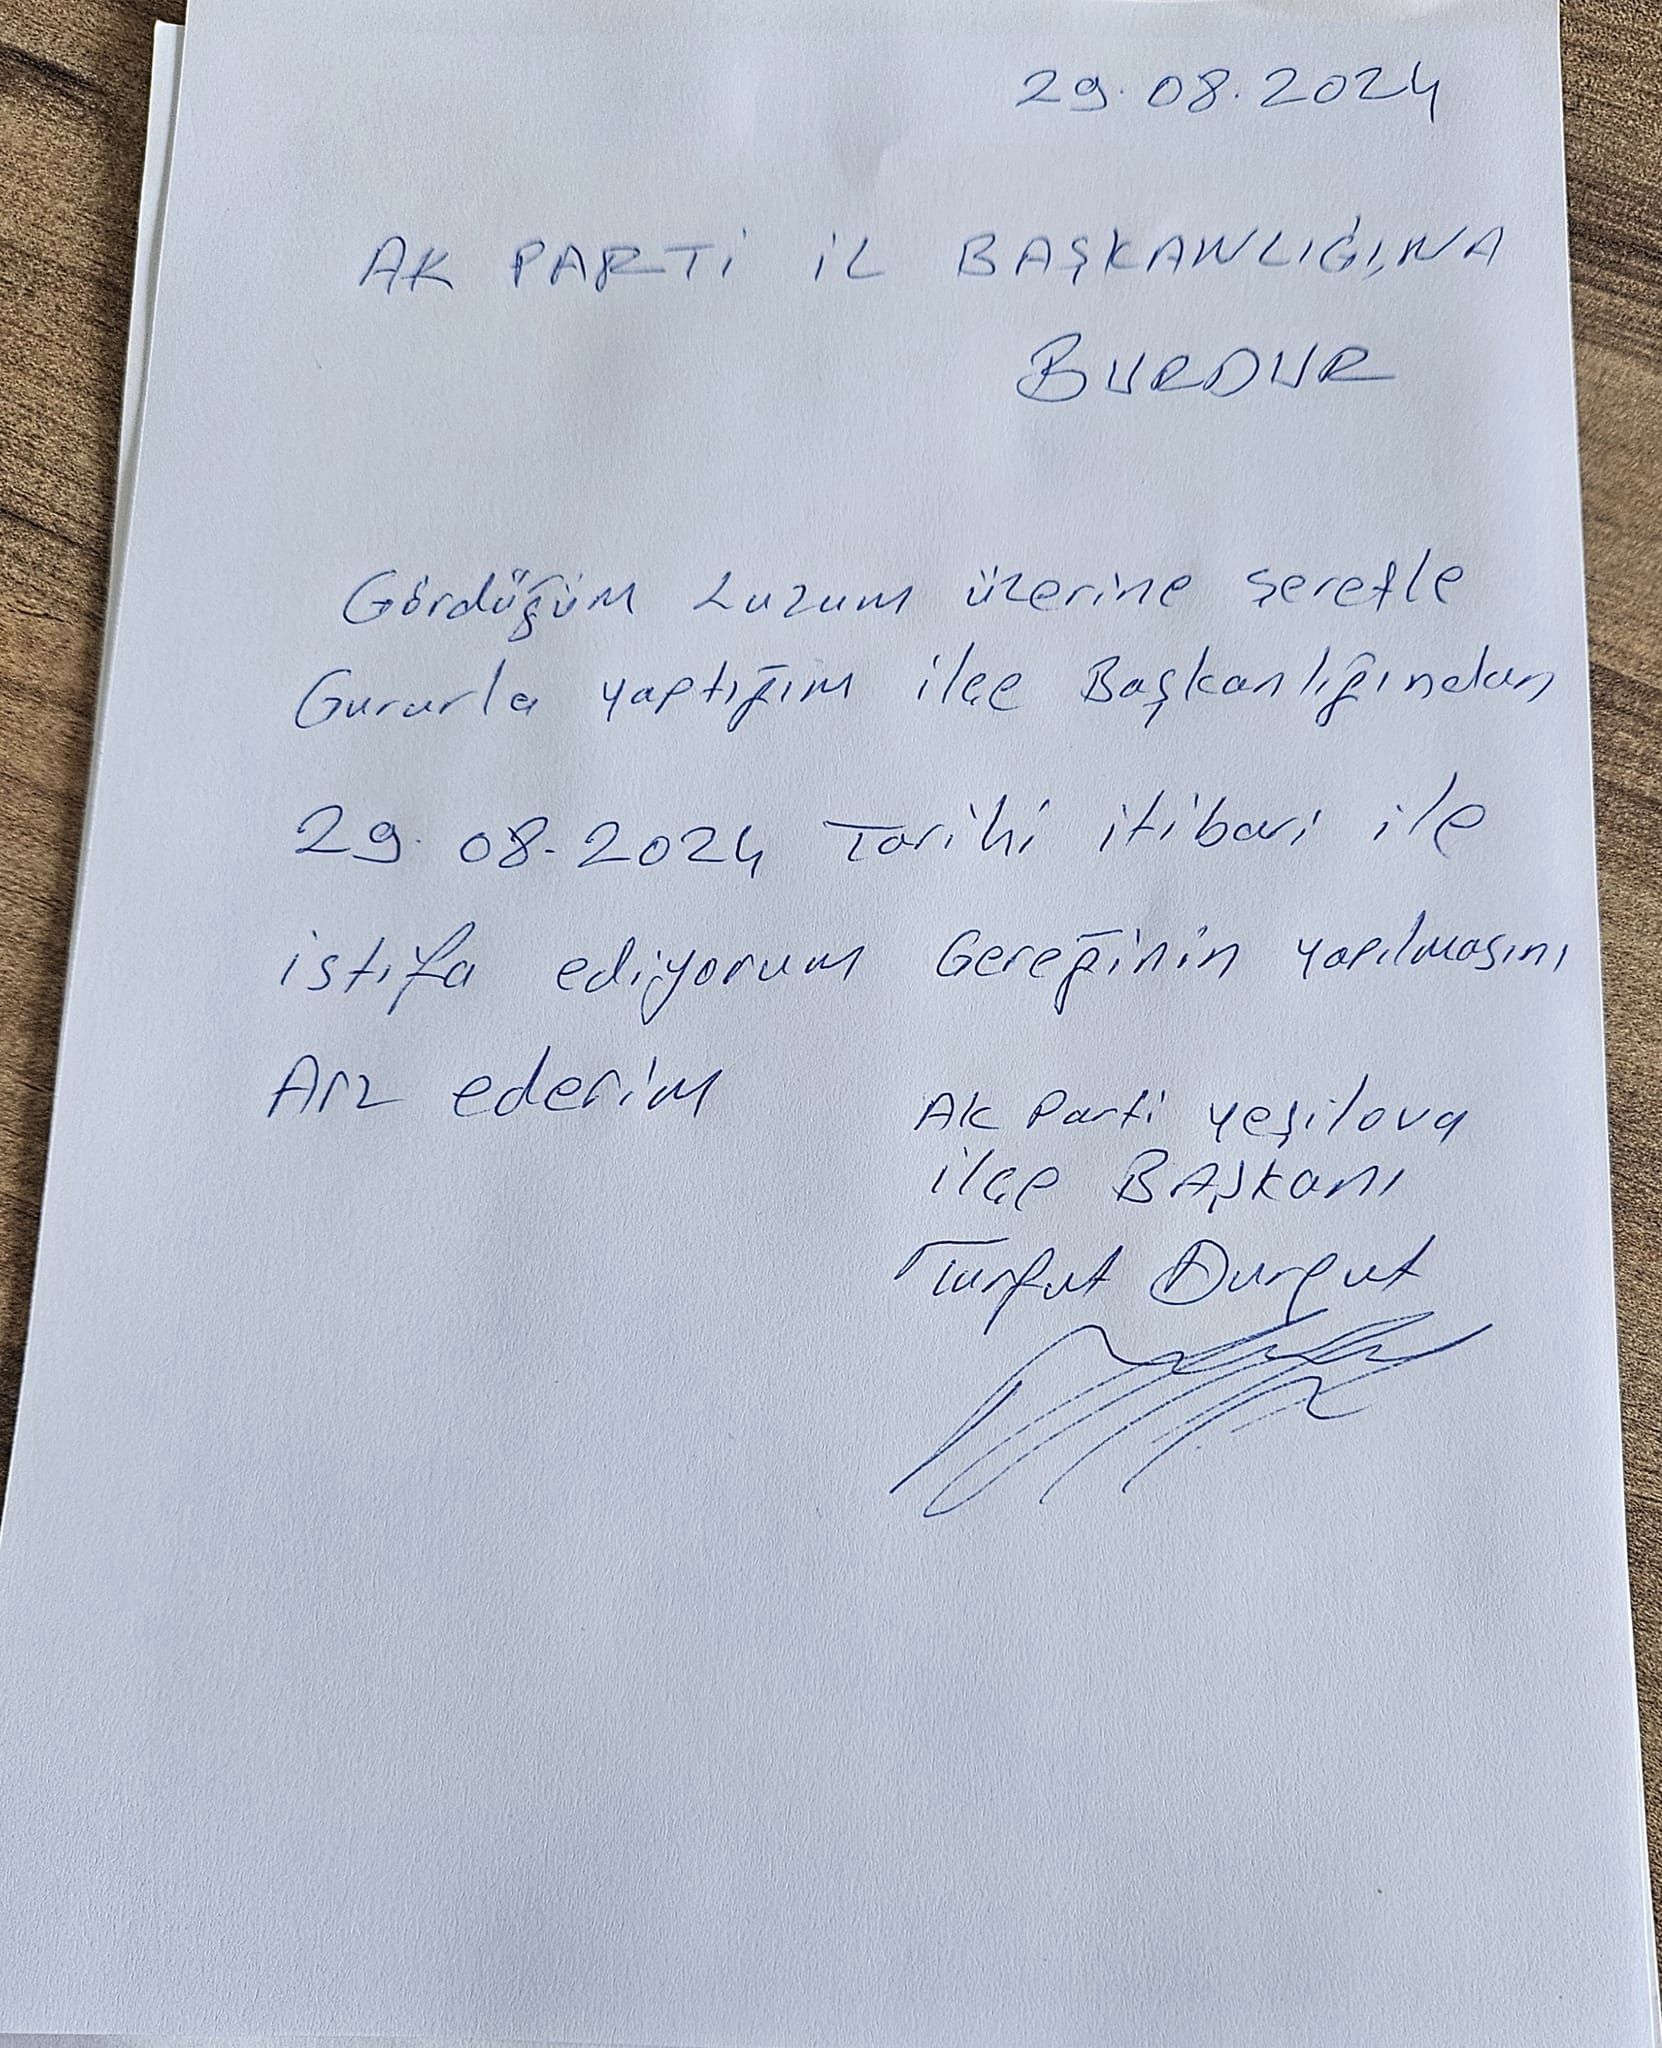 29.08.2024
AK PARTİ İL BAŞKANLIĞINA
BURDUR
Gördüğüm Luzum üzerine şerefle
Gururla yaptığım ilçe Başkanlığından
29.08.2024 Tarihi itibari ile
istifa ediyorum Gereğinin yapılmasını
Arz ederim
Ak Parti Yeşilova
ilçe BAŞkanı
Turgut Durgut